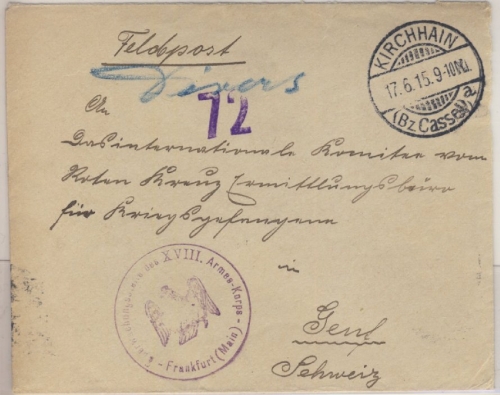 Feldpost
Divers
72
KIRCHHAIN
17.6.15. 9-10N.
(Bz. Cassel) a
An
Das internationale Komitee vom
Roten Kreuz Ermittlungsbüro
für Kriegsgefangene
in
Genf
Schweiz
des XVIII. Armee-Korps - Frankfurt (Main) -